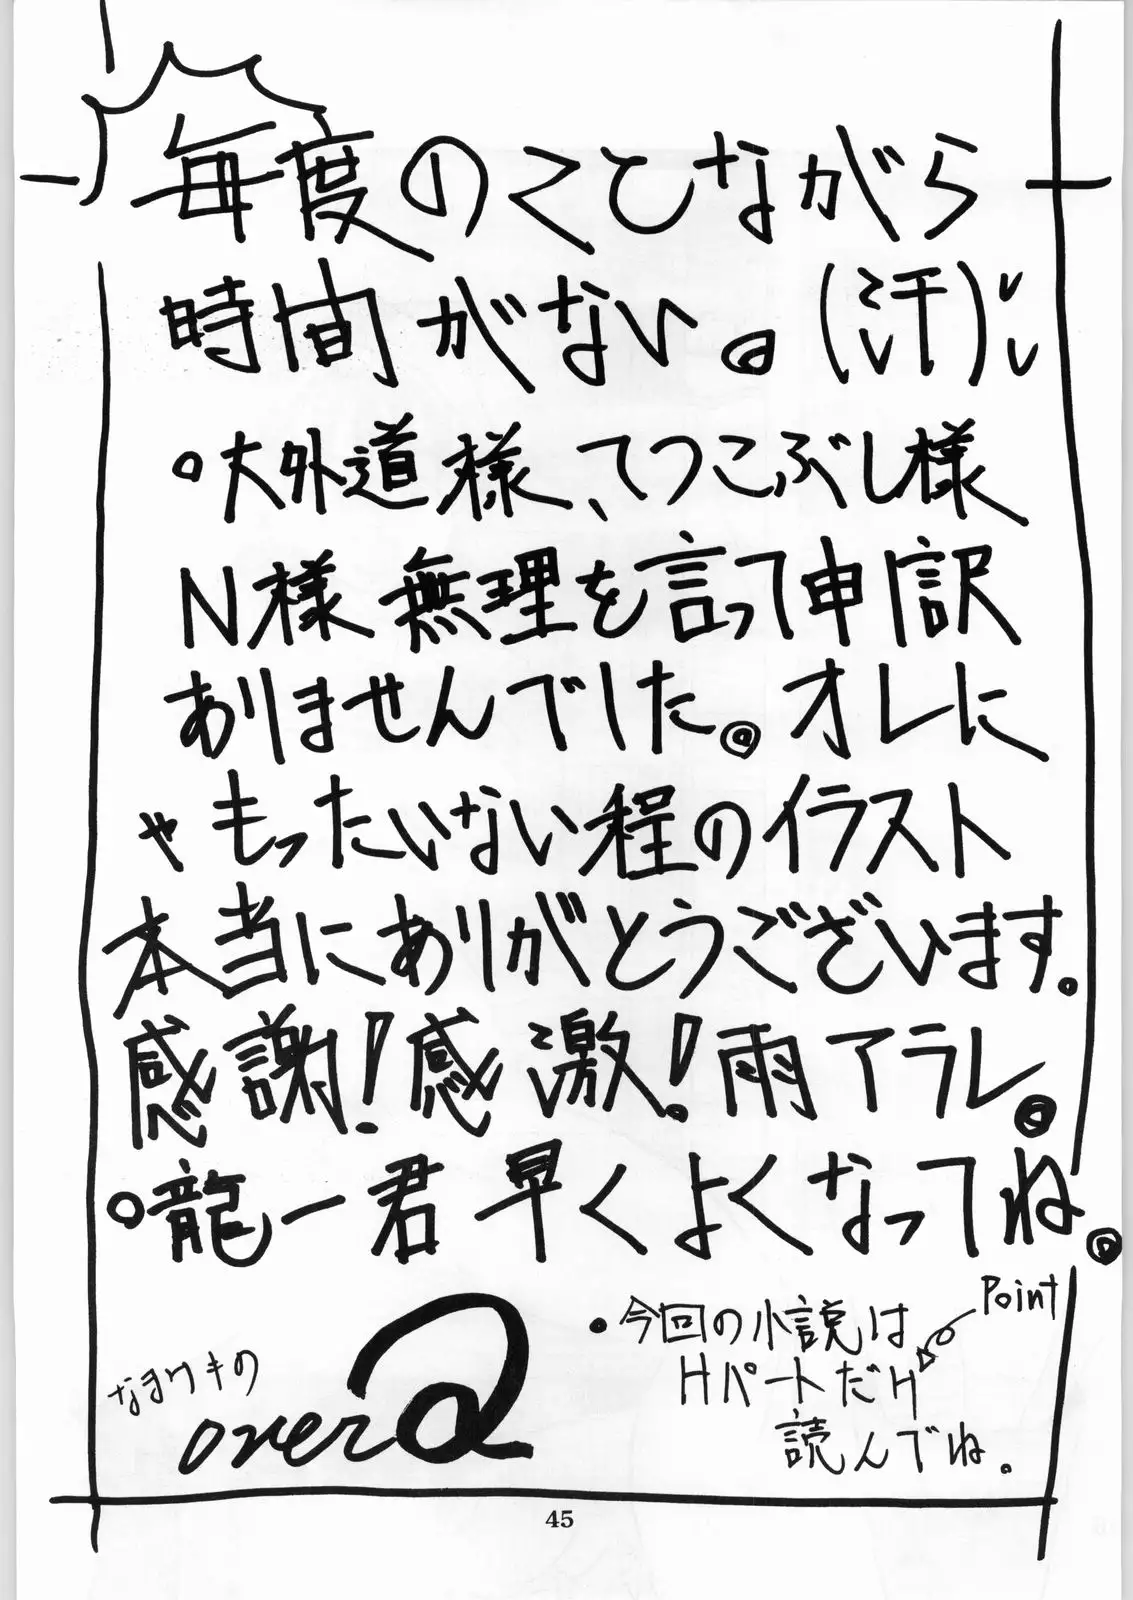 毎度のことながら
時間がない。(汗)
。大外道様、てつこぶし様
N様 無理を言って申し訳
ありませんでした。オレに
ゃもったいない程のイラスト
本当にありがとうございます。
感謝!感激!雨アラレ。
。龍一君 早くよくなってね。
Point
・今回の小説は
Hパートだけ
読んでね。
なまけもの
over Q
45